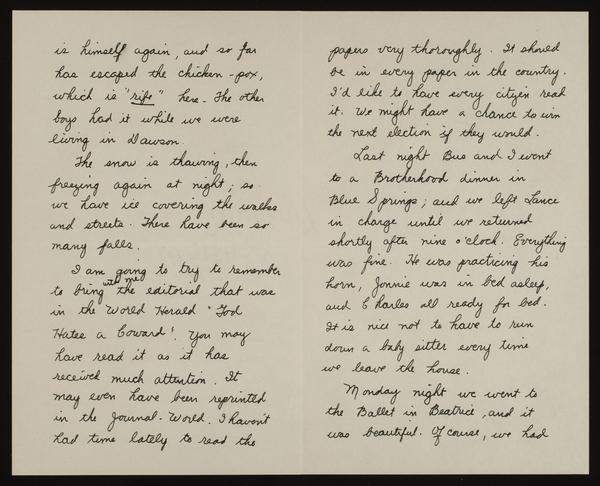 is himself again, and so far
has escaped the chicken-pox,
which is "rife" here. The other
boys had it while we were
living in Dawson.
The snow is thawing, then
freezing again at night; so
we have ice covering the walks
and streets. There have been so
many falls.
I am going to try to remember
to bring with me the editorial that was
in the World Herald "God
Hates a Coward". You may
have read it as it has
received much attention. It
may even have been reprinted
in the Journal-World. I haven't
had time lately to read the
papers very thoroughly. It should
be in every paper in the country.
I'd like to have every citizen read
it. We might have a chance to win
the next election if they would.
Last night Bus and I went
to a Brotherhood dinner in
Blue Springs; and we left Lance
in charge until we returned
shortly after nine o'clock. Everything
was fine. He was practicing his
horn, Jonnie was in bed asleep,
and Charles all ready for bed.
It is nice not to have to run
down a baby sitter every time
we leave the house.
Monday night we went to
the Ballet in Beatrice, and it
was beautiful. Of course, we had